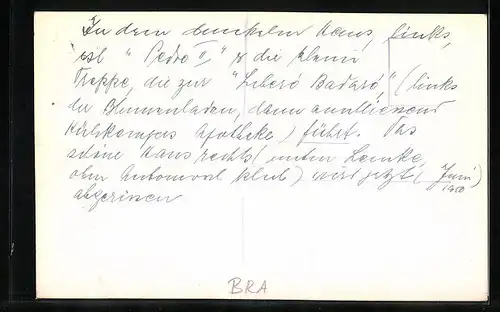 In dem dunkeln Haus, links,
ist "Pedro II," & die kleine
Treppe, die zur "Liberó Badaró," (links
der Blumenladen, dann anschliessend
Apotheke) führt. Das
schöne Haus rechts (unten Lemke,
oben Automobil Klub) wird jetzt (Juni
1950)
abgerissen
BRA